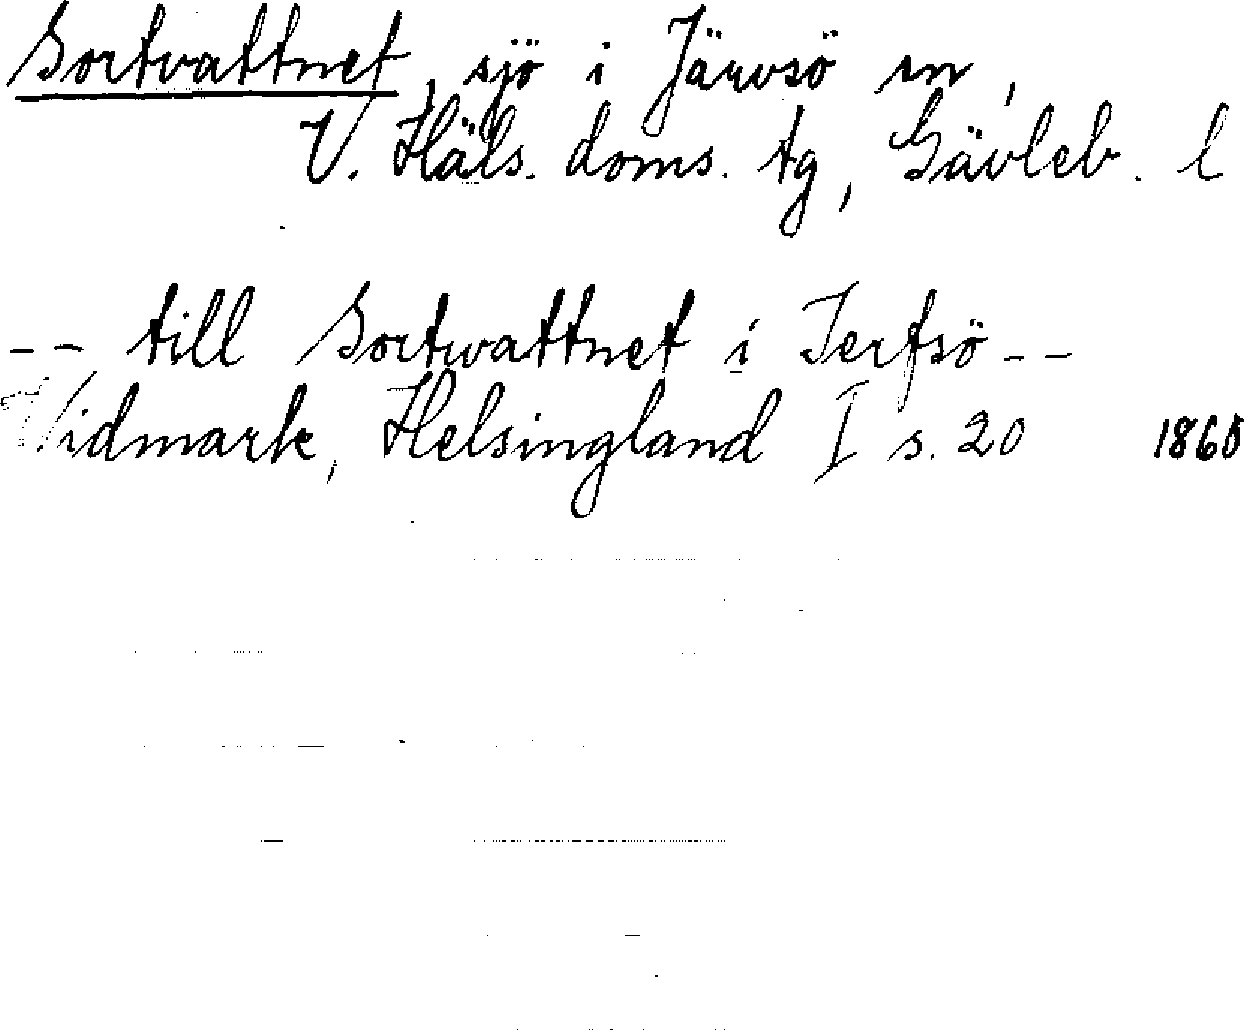 Sortvattnet, sjö i Järvsö sn,
V. Häls. doms. tg, Gävleb. l
-- till Sortwattnet i Jerfsö --
Widmark, Helsingland I s. 20 1860